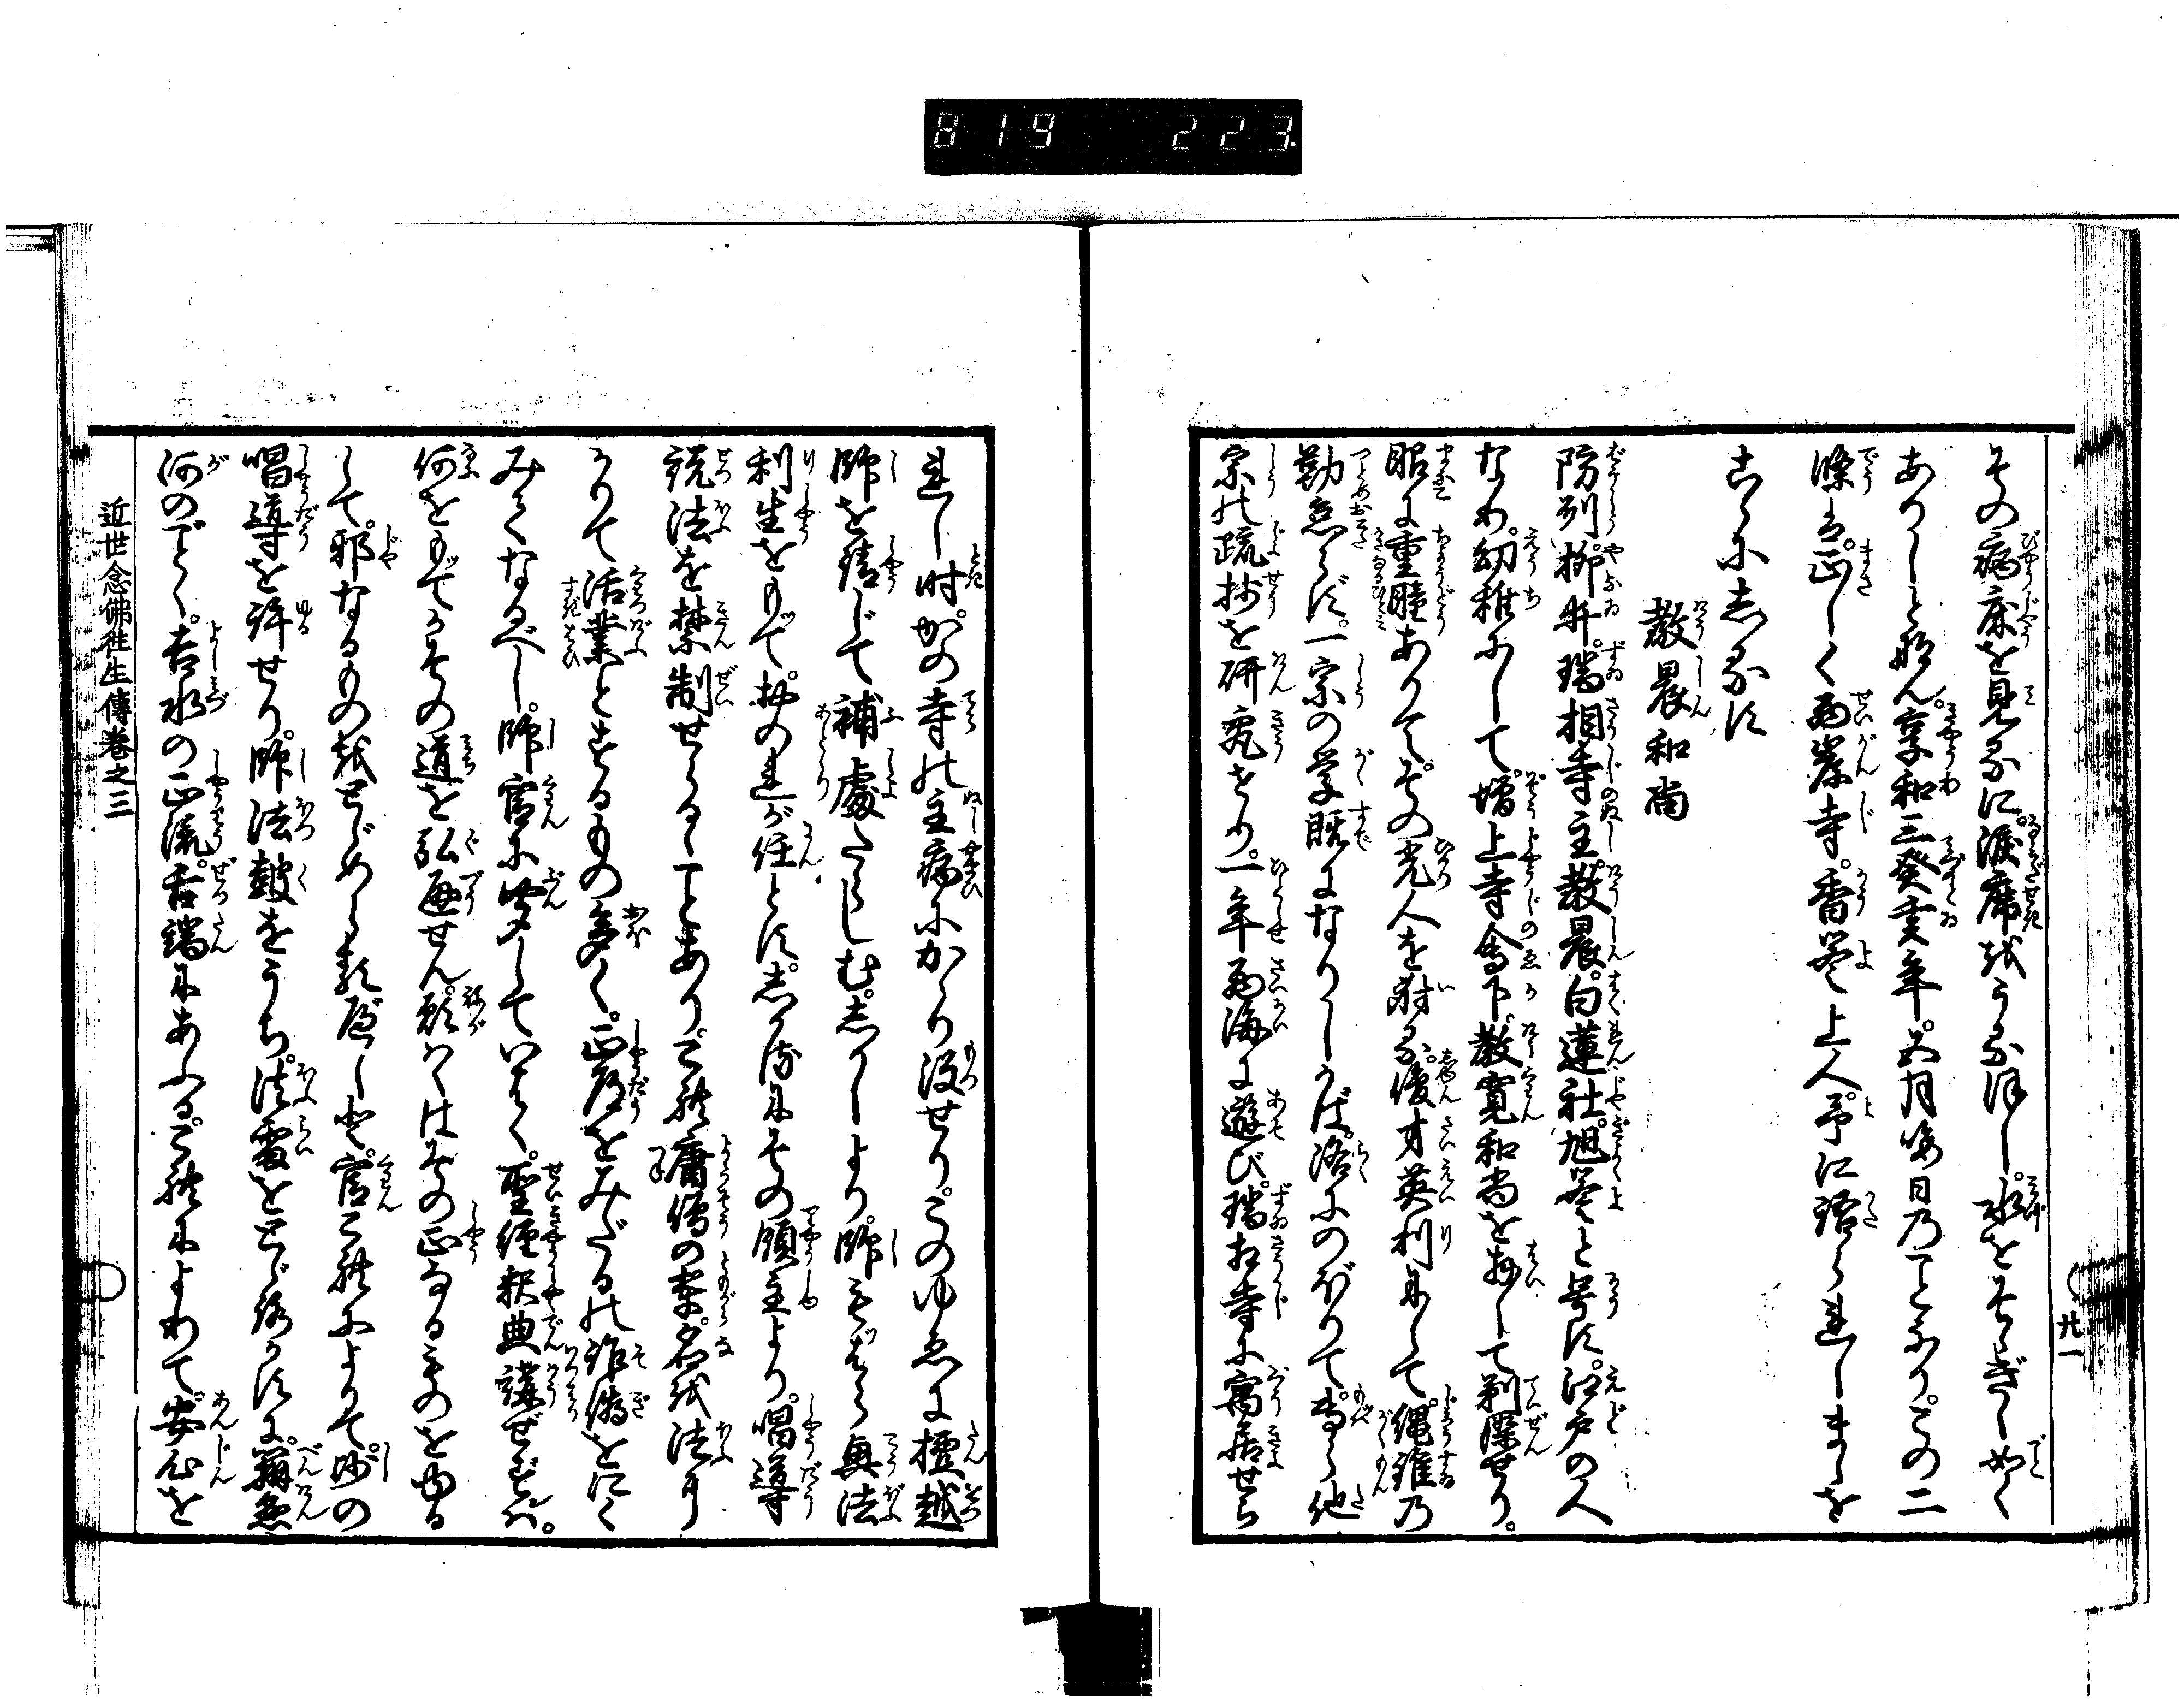 819 223
廿一
その病床を見るに涙席をうるほし水をそゝぎし如く
ありしとなん享和三癸亥年五月晦日のことなりこの二
條は正しく西岸寺香誉上人予に語られしまゝを
こゝにしるす
教晨和尚
防州柳井瑞相寺主教晨白蓮社旭誉と号す江戸の人
なり幼稚にして増上寺会下教寛和尚を拝して剃染せり
眼に重瞳ありてその光人を射る俊才英利にして縄錐の
勤怠らず一宗の学既になりしかば洛にのぼりて専ら他
宗の疏抄を研究せり一年西海に遊び瑞相寺に寓居せら
れし時かの寺の主病にかゝり没せりこのゆゑに檀越
師を請じて補處たらしむしかしより師もつぱら興法
利生をもて其の任とすしかるにその領主より唱導
説法を禁制せることありこれ庸僧の輩名を法に
かりて活業とするもの多く正道をみだるの詐偽をにく
みてなるべし師官に聞していはく聖経釈典講ぜずんば
何をもてかその道を弘通せん願はくはその正なるものをゆる
して邪なるものをとゞめらるべしと官これによりて師の
唱導を許せり師法鼓をうち法雷をとゞろかすに辯懸
河のごとく吉水の正流舌端にあふるこれによりて安心を
近世念佛往生傳巻之三